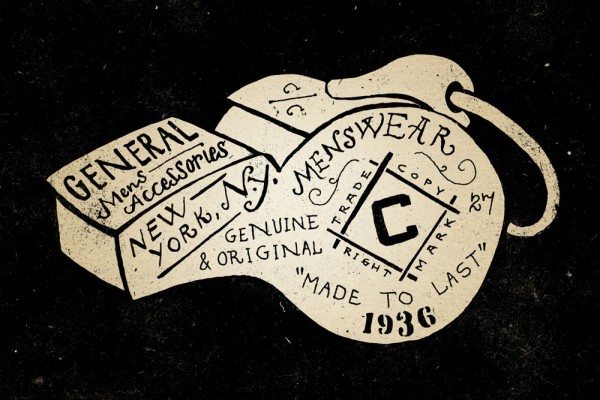 GENERAL
Mens
Accessories
NEW
YORK, N.Y.
GENUINE
& ORIGINAL
MENSWEAR
TRADE
COPY
C
RIGHT
MARK
27
"MADE TO LAST"
1936